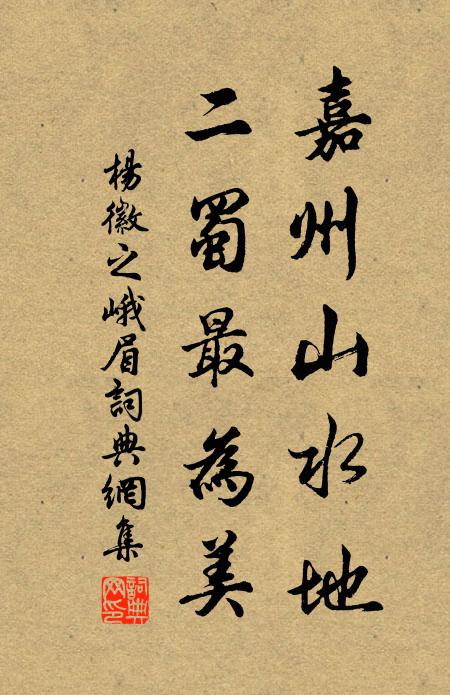 嘉州山水地
二蜀最為美
楊徽之峨眉詞典網集
詞典網印